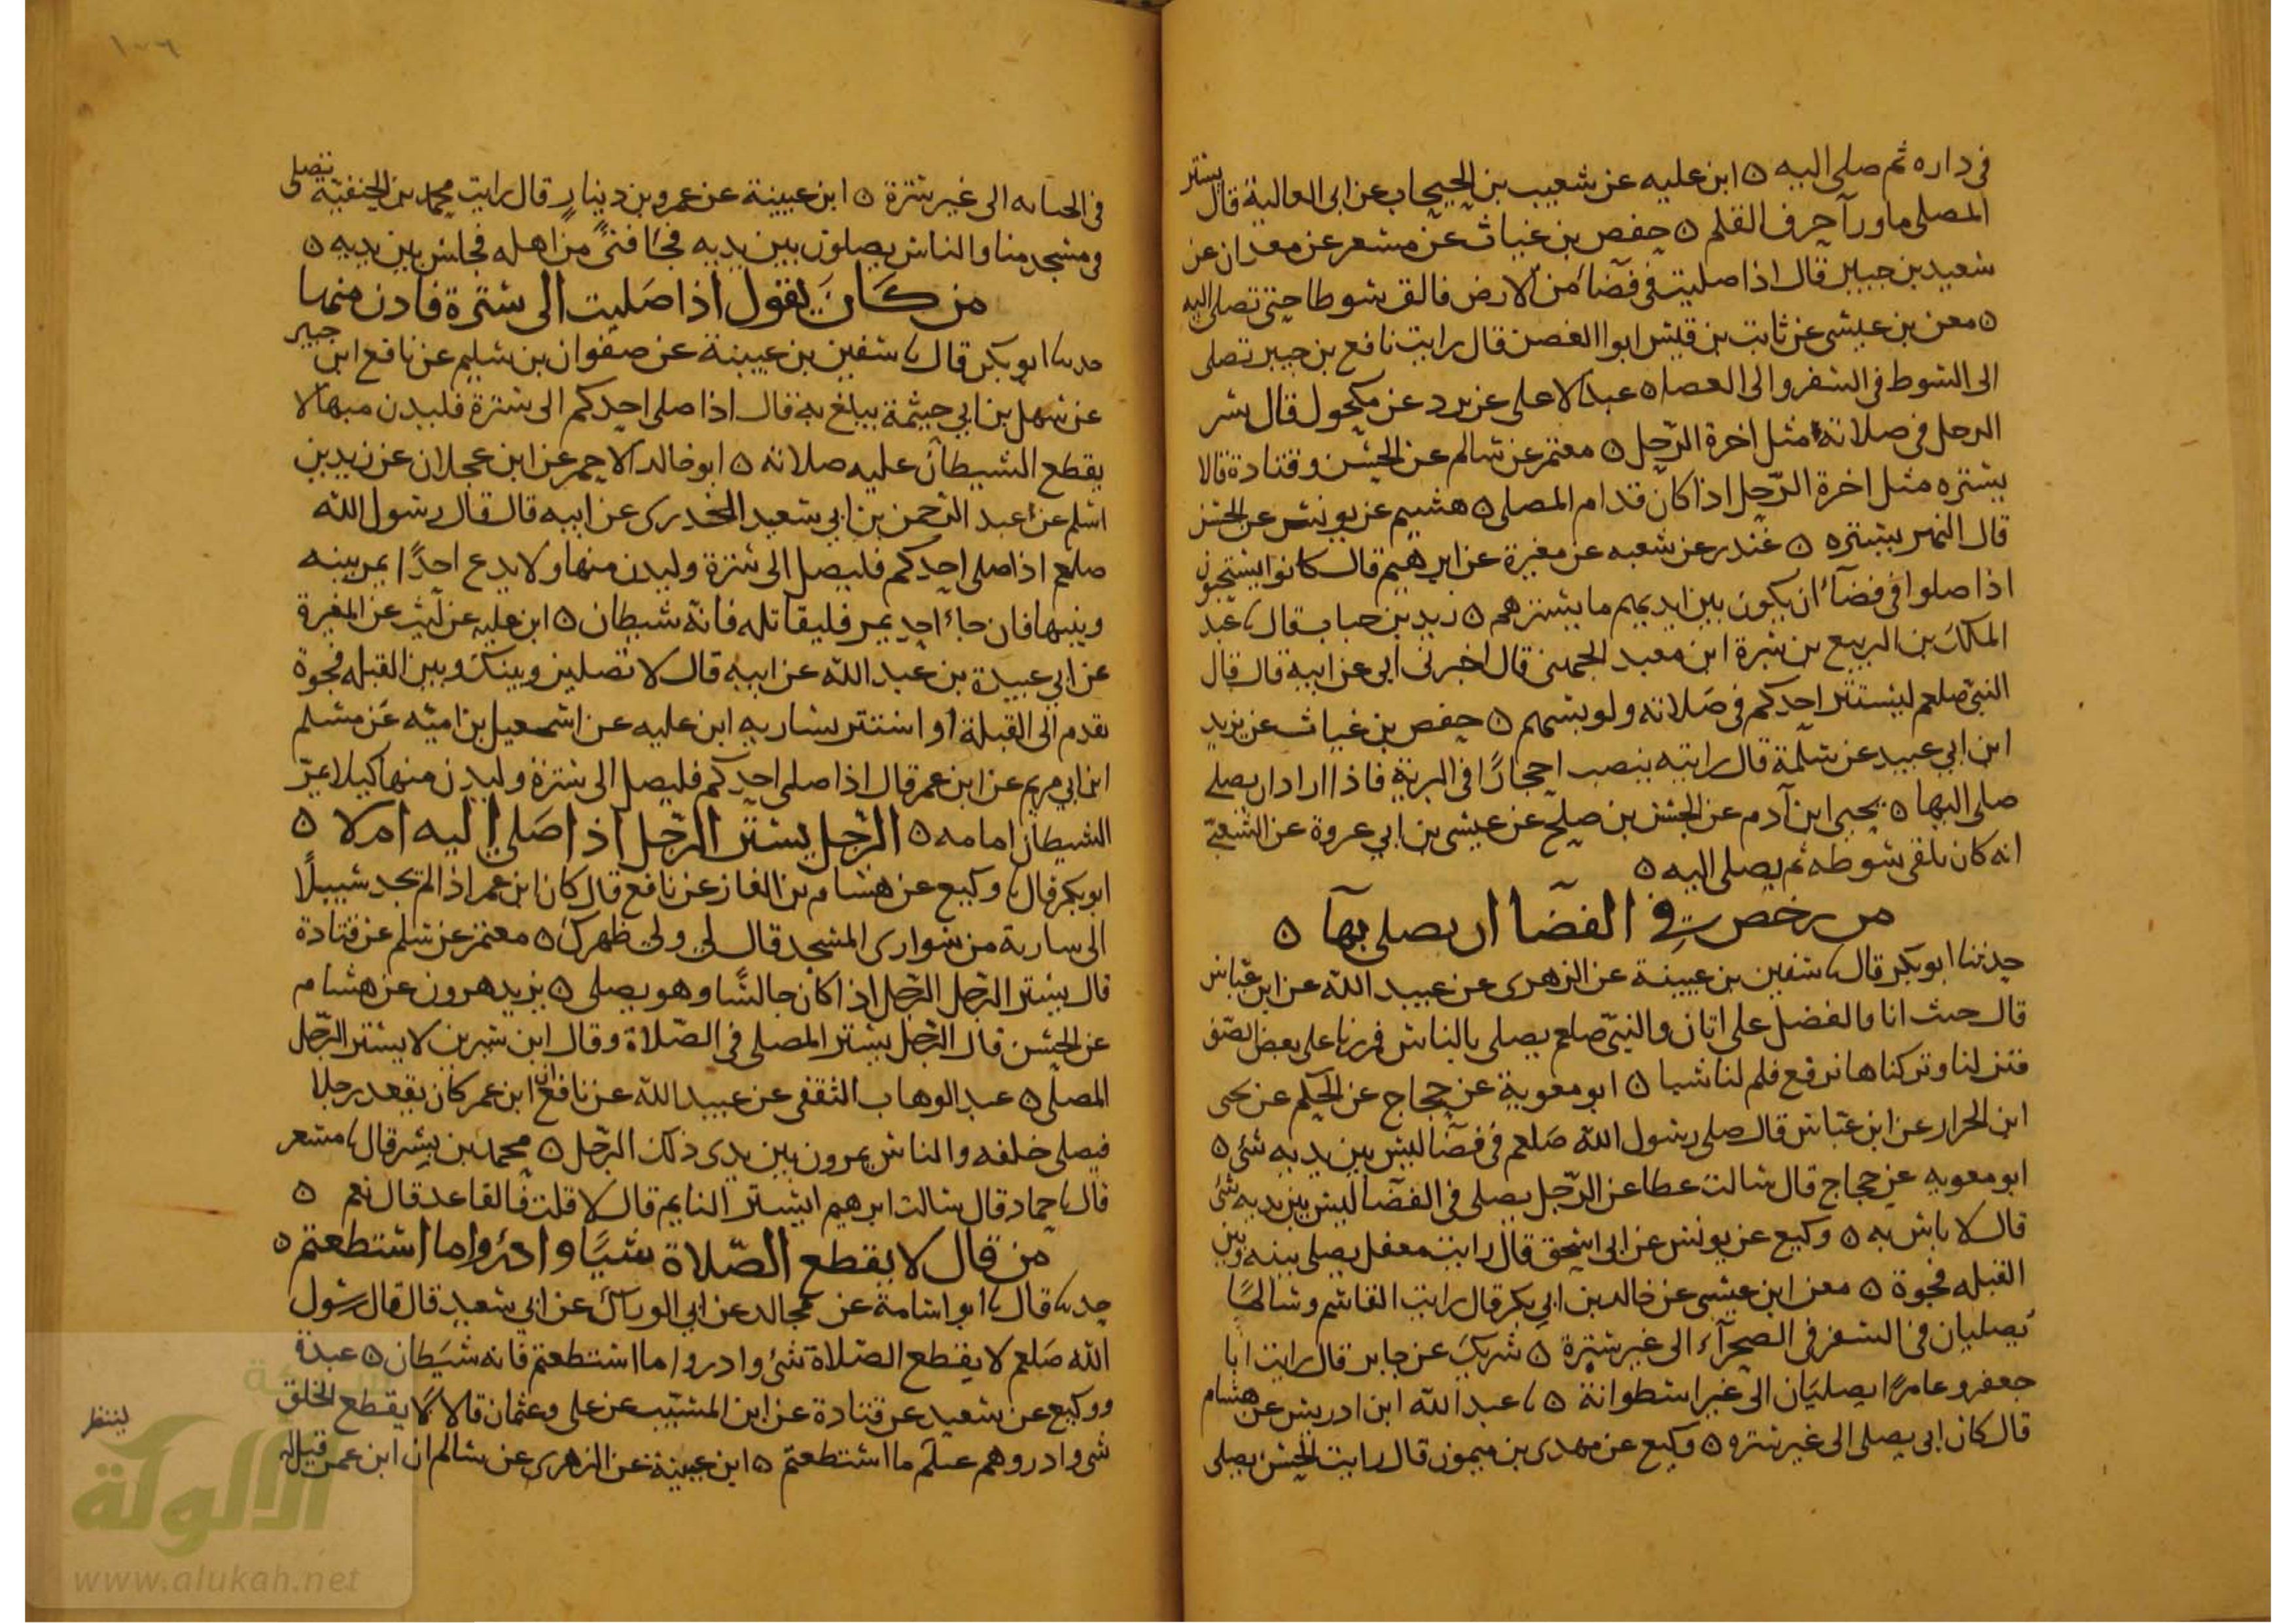 في داره ثم صلى اليه ٥ ابن عليه عن شعيب بن الحبحاب عن ابى العالية قال يستر
المصلى ما ورآ حرف القلم ٥ حفص بن غياث عن مسعر عن معدان عن
سعيد بن جبير قال اذا صليت في فضآء من الارض فالق سوطا حتى تصلى اليه
٥ معن بن عيسى عن ثابت بن قيس ابو الغصن قال رايت نافع بن جبير تصلى
الى السوط في السفر والى العصا ٥ عبد الاعلى عن برد عن مكحول قال يستر
الرجل في صلاته مثل اخرة الرحل ٥ معتمر عن سالم عن الحسن وقتادة قالا
يستره مثل اخرة الرحل اذا كان قدام المصلى ٥ هشيم عن يونس عن الحسن
قال النهر يستره ٥ غندر عن شعبه عن مغيرة عن ابرهيم قال كانوا يستحبون
اذا صلوا في فضآء ان يكون بين ايديهم ما يسترهم ٥ زيد بن حباب قال نا عبد
الملك بن الربيع بن سبرة ابن معبد الجهنى قال اخبرنى ابى عن ابيه قال قال
النبى صلعم ليستتر احدكم في صلاته ولو بسهم ٥ حفص بن غياث عن يزيد
ابن ابي عبيد عن سلمة قال رايته ينصب احجارًا في البرية فاذا اراد ان يصلى
صلى اليها ٥ يحيى ابن آدم عن الحسن بن صلح عن عيسى بن ابي عروة عن الشعبى
انه كان يلقى سوطه ثم يصلى اليه ٥
من رخص في الفضا ان يصلى بها ٥
حدثنا ابو بكر قال نا سفين بن عيينة عن الزهرى عن عبيد الله عن ابن عباس
قال جئت انا والفضل على اتان والنبى صلعم يصلى بالناس فمررنا على بعض الصف
فنزلنا وتركناها ترفع فلم لنا شيا ٥ ابو معوية عن حجاج عن الحكم عن يحيى
ابن الجزار عن ابن عباس قال صلى رسول الله صلعم في فضا ليس بين يديه شئ ٥
ابو معويه عن حجاج قال سالت عطا عن الرجل يصلى في الفضا ليس بين يديه شئ
قال لا باس به ٥ وكيع عن يونس عن ابى اسحق قال رايت معقل يصلى بينه وبين
القبله فجوة ٥ معن ابن عيسى عن خالد بن ابي بكر قال رايت القاسم وسالمًا
يصليان في السفر في الصحرآء الى غير سترة ٥ شريك عن جابر قال رايت ابا
جعفر وعامرًا يصليان الى غير اسطوانة ٥ نا عبد الله ابن ادريس عن هشام
قال كان ابى يصلى الى غير ستره ٥ وكيع عن مهدى بن ميمون قال رايت الحسن يصلى
١٠٦
في الجبانه الى غير سترة ٥ ابن عيينة عن عمرو بن دينار قال رايت محمد بن الحنفية تصلى
في مسجد منا والناس يصلون بين يديه فجآ فتىً من اهله فجلس بين يديه ٥
من كان يقول اذا صليت الى سترة فادن منها
حدثنا ابو بكر قال نا سفين بن عيينة عن صفوان بن سليم عن نافع ابن جبير
عن سهل بن ابي حيثمة يبلغ به قال اذا صلى احدكم الى سترة فليدن منها لا
يقطع الشيطان عليه صلاته ٥ ابو خالد الاحمر عن ابن عجلان عن زيد بن
اسلم عن عبد الرحمن بن ابي سعيد الخدرى عن ابيه قال قال رسول الله
صلعم اذا صلى احدكم فليصل الى سترة وليدن منها ولا يدع احدًا يمر بينه
وبينها فان جاء احد يمر فليقاتله فانه شيطان ٥ ابن عليه عن ليث عن المغيرة
عن ابي عبيدة بن عبد الله عن ابيه قال لا تصلين وبينك وبين القبله فجوة
تقدم الى القبلة او استتر بساريه ابن عليه عن اسمعيل بن اميه عن مسلم
ابن ابي مريم عن ابن عمر قال اذا صلى احدكم فليصل الى سترة وليدن منها كيلا يمر
الشيطان امامه ٥ الرجل يستر الرجل اذا صلى اليه ام لا ٥
ابو بكر قال نا وكيع عن هشام بن الغاز عن نافع قال كان ابن عمر اذا لم يجد سبيلًا
الى سارية من سوارى المسجد قال لي ولي ظهرك ٥ معتمر عن سلم عن قتادة
قال يستر الرجل الرجل اذا كان جالسًا وهو يصلى ٥ يزيد هرون عن هشام
عن الحسن قال الرجل يستر المصلى في الصلاة وقال ابن سيرين لا يستر الرجل
المصلى ٥ عبد الوهاب الثقفى عن عبيد الله عن نافع ان ابن عمر كان يقعد رجلا
فيصلى خلفه والناس يمرون بين يدى ذلك الرجل ٥ محمد بن بشر قال نا مسعر
قال نا حماد قال سالت ابرهيم ايستر النايم قال لا قلت فالقاعد قال نعم ٥
من قال لا يقطع الصلاة شيًا وادرؤا ما استطعتم ٥
حدثنا قال نا ابو اسامة عن مجالد عن ابي الوداك عن ابي سعيد قال قال رسول
الله صلعم لا يقطع الصلاة شئ وادروا ما استطعتم فانه شيطان ٥ عبدة
ووكيع عن سعيد عن قتادة عن ابن المسيب عن على وعثمان قالا لا يقطع الخلق
شى وادروهم عنكم ما استطعتم ٥ ابن عيينة عن الزهرى عن سالم ان ابن عمر قيل له
لينتظر
الألوكة
www.alukah.net